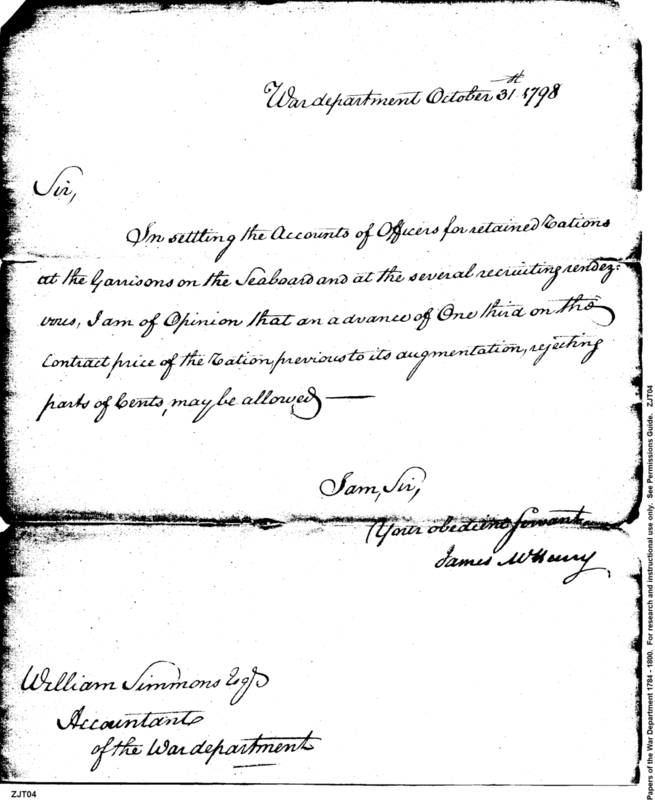 War department October 31st 1798
Sir,
In settling the Accounts of Officers for retained Rations
at the Garrisons on the Seaboard and at the several recruiting rendez:
vous, I am of Opinion that an advance of One third on the
Contract price of the Ration, previous to its augmentation, rejecting
parts of Cents, may be allowed —
I am, Sir,
Your obedient Servant
James McHenry
William Simmons Esqr
Accountant
of the War department
ZJT04
Papers of the War Department 1784 - 1800. For research and instructional use only. See Permissions Guide. ZJT04